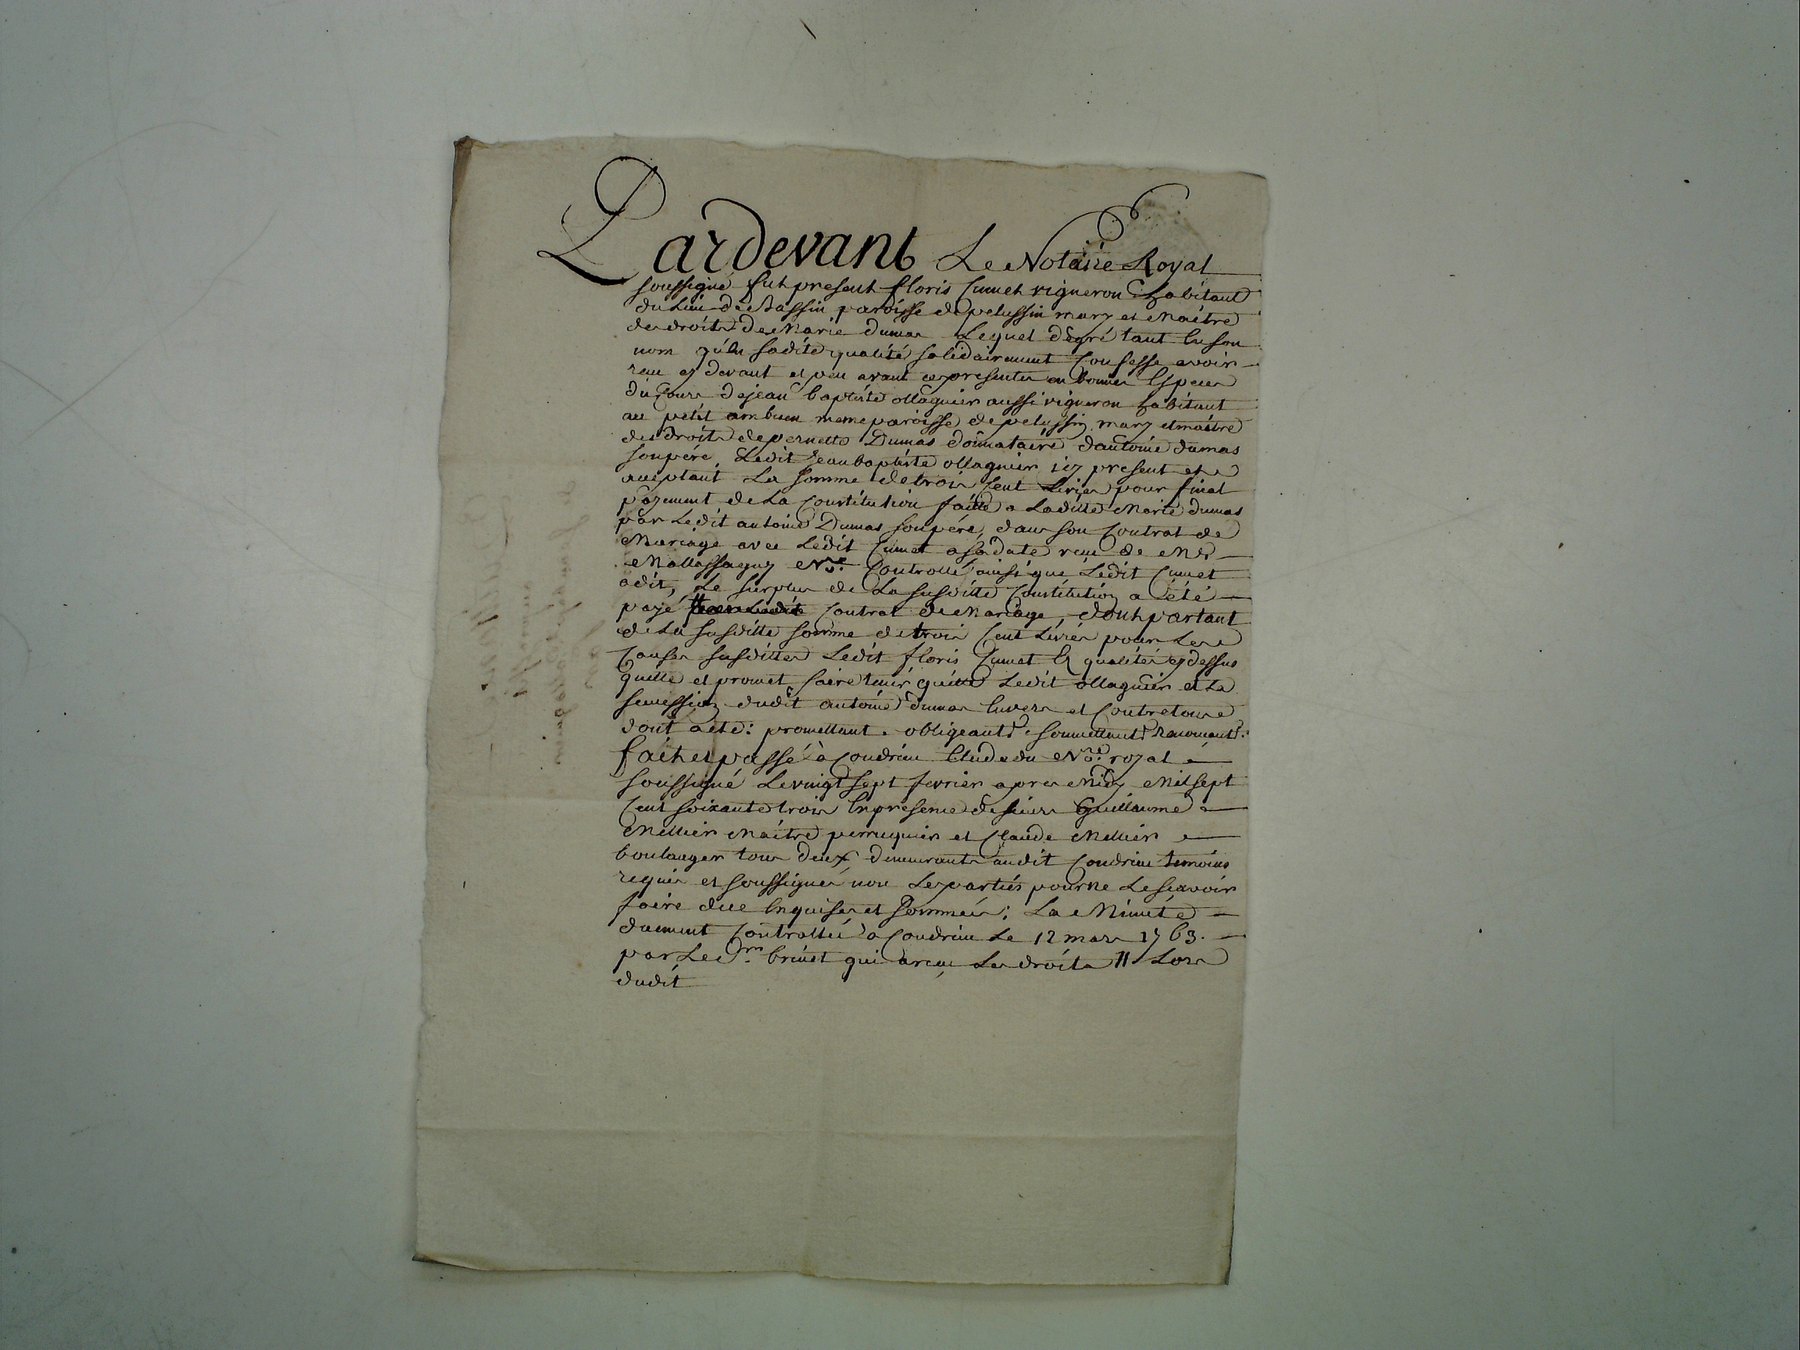 Pardevant Le Notaire Royal
soussigné fut present floris Cumet vigneron habitant
du Lieu de Bassin paroisse de pelussin mary et Maitre
des droits de Marie dumas Lequel de gré tant En son
nom qu'En sadite qualité solidairement Confesse avoir
reçu cy devant et peu avant ces presentes en bonnes Especes
du Cours de jean baptiste ollagnier aussi vigneron habitant
au petit embuen meme paroisse de pelussin mary et maitre
des droits de pernette Dumas donnataire d'antoine dumas
son pere, Ledit jean baptiste ollagnier icy present et
acceptant La somme de trois Cent Livres pour final
payement de La Constitution faitte a Laditte Marie dumas
par Ledit antoine Dumas son pere, dans son Contrat de
Mariage avec Ledit Cumet a sa date reçu de Me
Mallassagny Nre. Controllé ainsi que Ledit Cumet
a dit, Le surplus de La susditte Constitution a été
payé Contrat de Mariage, dont partant
de La susditte somme de trois Cent Livres pour Les
Causes susdittes Ledit floris Cumet Es qualités cy dessus
quitte et promet faire tenir quitte Ledit ollagnier et La
succession dudit antoine dumas Envers et Contre tous
dont acte: promettant. obligeant. soumettant. Renonceant.
fait et passé à Condrieu Etude du Nre. royal
soussigné Le vingt sept fevrier apres Midy Mil sept
Cent soixante trois En presence de sieur Guillaume
Mellier Maitre perruquier et Claude Mellier
boulanger tous deux demeurants audit Condrieu temoins
requis et soussignés non Les parties pour ne Le sçavoir
faire de ce Enquises et sommées: La Minute
duement Controllée a Condrieu Le 12 mars 1763.
par Le Sr. brinet qui a reçu Les droits # Lors
dudit